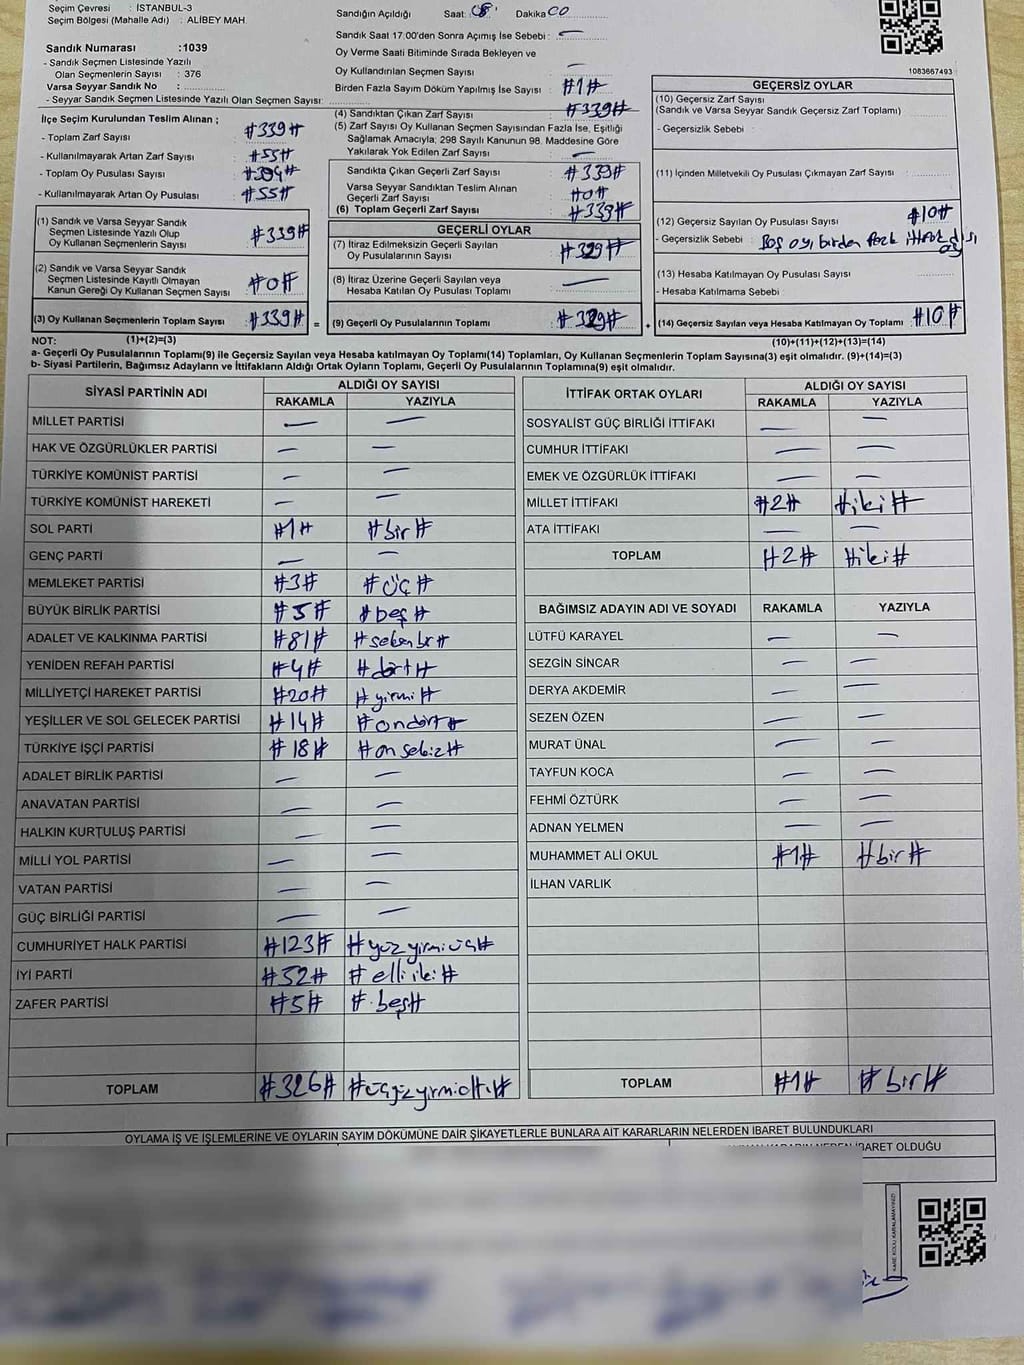 Seçim Çevresi : İSTANBUL-3
Seçim Bölgesi (Mahalle Adı) : ALİBEY MAH.
Sandık Numarası :1039
- Sandık Seçmen Listesinde Yazılı
Olan Seçmenlerin Sayısı : 376
Varsa Seyyar Sandık No :
- Seyyar Sandık Seçmen Listesinde Yazılı Olan Seçmen Sayısı:
Sandığın Açıldığı Saat: Dakika 00
Sandık Saat 17:00'den Sonra Açımış İse Sebebi : —
Oy Verme Saati Bitiminde Sırada Bekleyen ve
Oy Kullandırılan Seçmen Sayısı —
Birden Fazla Sayım Döküm Yapılmış İse Sayısı #1#
1083667493
İlçe Seçim Kurulundan Teslim Alınan ;
- Toplam Zarf Sayısı #339#
- Kullanılmayarak Artan Zarf Sayısı #55#
- Toplam Oy Pusulası Sayısı #394#
- Kullanılmayarak Artan Oy Pusulası #55#
(1) Sandık ve Varsa Seyyar Sandık
Seçmen Listesinde Yazılı Olup
Oy Kullanan Seçmenlerin Sayısı #339#
(2) Sandık ve Varsa Seyyar Sandık
Seçmen Listesinde Kayıtlı Olmayan
Kanun Gereği Oy Kullanan Seçmen Sayısı #0#
(3) Oy Kullanan Seçmenlerin Toplam Sayısı #339# =
(4) Sandıktan Çıkan Zarf Sayısı #339#
(5) Zarf Sayısı Oy Kullanan Seçmen Sayısından Fazla İse, Eşitliği
Sağlamak Amacıyla; 298 Sayılı Kanunun 98. Maddesine Göre
Yakılarak Yok Edilen Zarf Sayısı —
Sandıkta Çıkan Geçerli Zarf Sayısı #339#
Varsa Seyyar Sandıktan Teslim Alınan
Geçerli Zarf Sayısı #0#
(6) Toplam Geçerli Zarf Sayısı #339#
GEÇERLİ OYLAR
(7) İtiraz Edilmeksizin Geçerli Sayılan
Oy Pusulalarının Sayısı #329#
(8) İtiraz Üzerine Geçerli Sayılan veya
Hesaba Katılan Oy Pusulası Toplamı —
(9) Geçerli Oy Pusulalarının Toplamı #329# +
GEÇERSİZ OYLAR
(10) Geçersiz Zarf Sayısı
(Sandık ve Varsa Seyyar Sandık Geçersiz Zarf Toplamı)
- Geçersizlik Sebebi :
(11) İçinden Milletvekili Oy Pusulası Çıkmayan Zarf Sayısı :
(12) Geçersiz Sayılan Oy Pusulası Sayısı #10#
- Geçersizlik Sebebi : Boş oy, birden fazla ittifak dışı oy
(13) Hesaba Katılmayan Oy Pusulası Sayısı
- Hesaba Katılmama Sebebi :
(14) Geçersiz Sayılan veya Hesaba Katılmayan Oy Toplamı #10#
NOT: (1)+(2)=(3) (10)+(11)+(12)+(13)=(14)
a- Geçerli Oy Pusulalarının Toplamı(9) ile Geçersiz Sayılan veya Hesaba katılmayan Oy Toplamı(14) Toplamları, Oy Kullanan Seçmenlerin Toplam Sayısına(3) eşit olmalıdır. (9)+(14)=(3)
b- Siyasi Partilerin, Bağımsız Adayların ve İttifakların Aldığı Ortak Oyların Toplamı, Geçerli Oy Pusulalarının Toplamına(9) eşit olmalıdır.
SİYASİ PARTİNİN ADI ALDIĞI OY SAYISI
RAKAMLA YAZIYLA
MİLLET PARTİSİ — —
HAK VE ÖZGÜRLÜKLER PARTİSİ — —
TÜRKİYE KOMÜNİST PARTİSİ — —
TÜRKİYE KOMÜNİST HAREKETİ — —
SOL PARTİ #1# #bir#
GENÇ PARTİ — —
MEMLEKET PARTİSİ #3# #üç#
BÜYÜK BİRLİK PARTİSİ #5# #beş#
ADALET VE KALKINMA PARTİSİ #81# #seksenbir#
YENİDEN REFAH PARTİSİ #4# #dört#
MİLLİYETÇİ HAREKET PARTİSİ #20# #yirmi#
YEŞİLLER VE SOL GELECEK PARTİSİ #14# #ondört#
TÜRKİYE İŞÇİ PARTİSİ #18# #onsekiz#
ADALET BİRLİK PARTİSİ — —
ANAVATAN PARTİSİ — —
HALKIN KURTULUŞ PARTİSİ — —
MİLLİ YOL PARTİSİ — —
VATAN PARTİSİ — —
GÜÇ BİRLİĞİ PARTİSİ — —
CUMHURİYET HALK PARTİSİ #123# #yüzyirmiüç#
İYİ PARTİ #52# #elliiki#
ZAFER PARTİSİ #5# #beş#
TOPLAM #326# #üçyüzyirmialtı#
İTTİFAK ORTAK OYLARI ALDIĞI OY SAYISI
RAKAMLA YAZIYLA
SOSYALİST GÜÇ BİRLİĞİ İTTİFAKI — —
CUMHUR İTTİFAKI — —
EMEK VE ÖZGÜRLÜK İTTİFAKI — —
MİLLET İTTİFAKI #2# #iki#
ATA İTTİFAKI — —
TOPLAM #2# #iki#
BAĞIMSIZ ADAYIN ADI VE SOYADI RAKAMLA YAZIYLA
LÜTFÜ KARAYEL — —
SEZGİN SİNCAR — —
DERYA AKDEMİR — —
SEZEN ÖZEN — —
MURAT ÜNAL — —
TAYFUN KOCA — —
FEHMİ ÖZTÜRK — —
ADNAN YELMEN — —
MUHAMMET ALİ OKUL #1# #bir#
İLHAN VARLIK
TOPLAM #1# #bir#
OYLAMA İŞ VE İŞLEMLERİNE VE OYLARIN SAYIM DÖKÜMÜNE DAİR ŞİKAYETLERLE BUNLARA AİT KARARLARIN NELERDEN İBARET BULUNDUKLARI
İBARET OLDUĞU